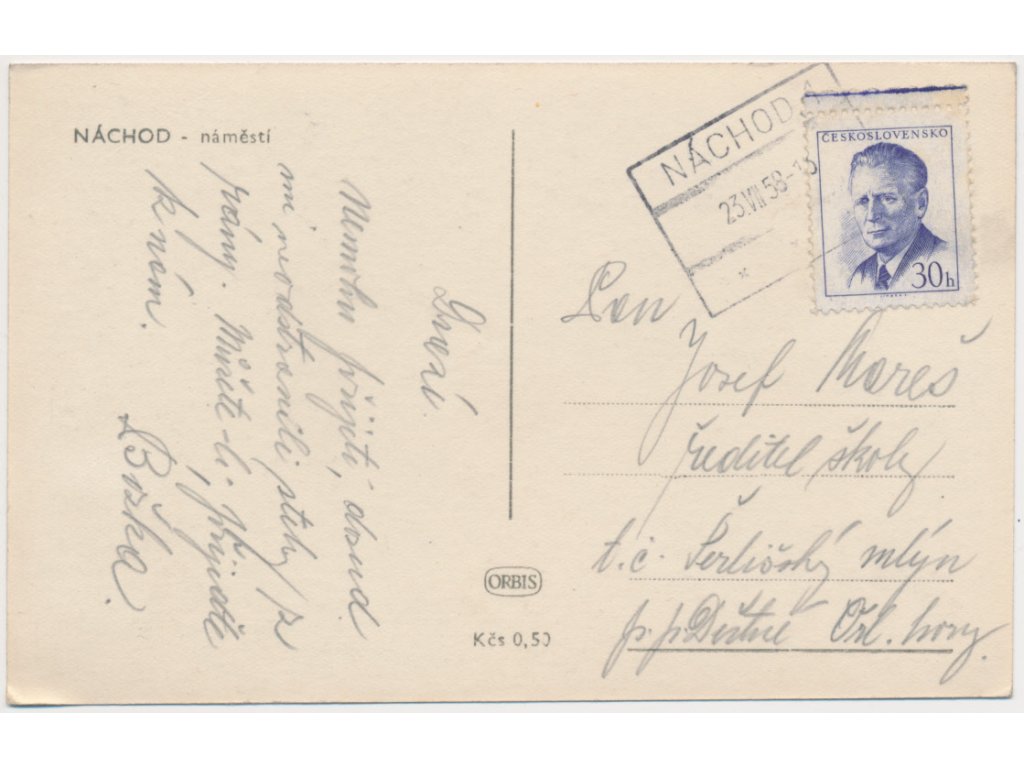 NÁCHOD - náměstí
Drazí
Nemohu přijíti, dosud
mi neodstranili stehy z
rány. Můžete-li, přijeďte
k nám.
Božka.
NÁCHOD
23.VII.58-13
*
ČESKOSLOVENSKO
30h
Pan
Josef Mareš
ředitel školy
t. č. Šerlišský mlýn
p. p. Deštné Orl. hory.
ORBIS
Kčs 0,50